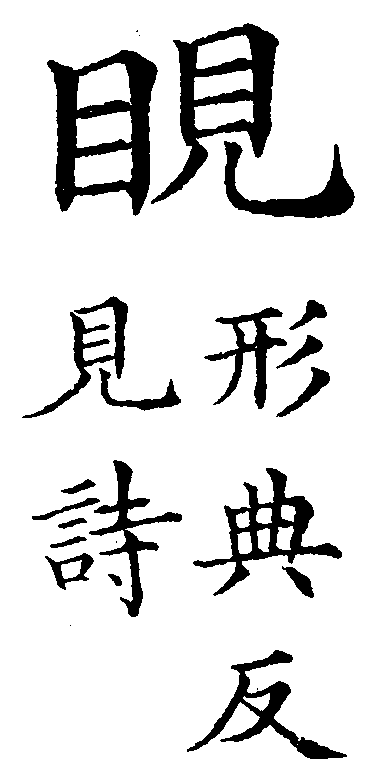 睍
形典反
見詩